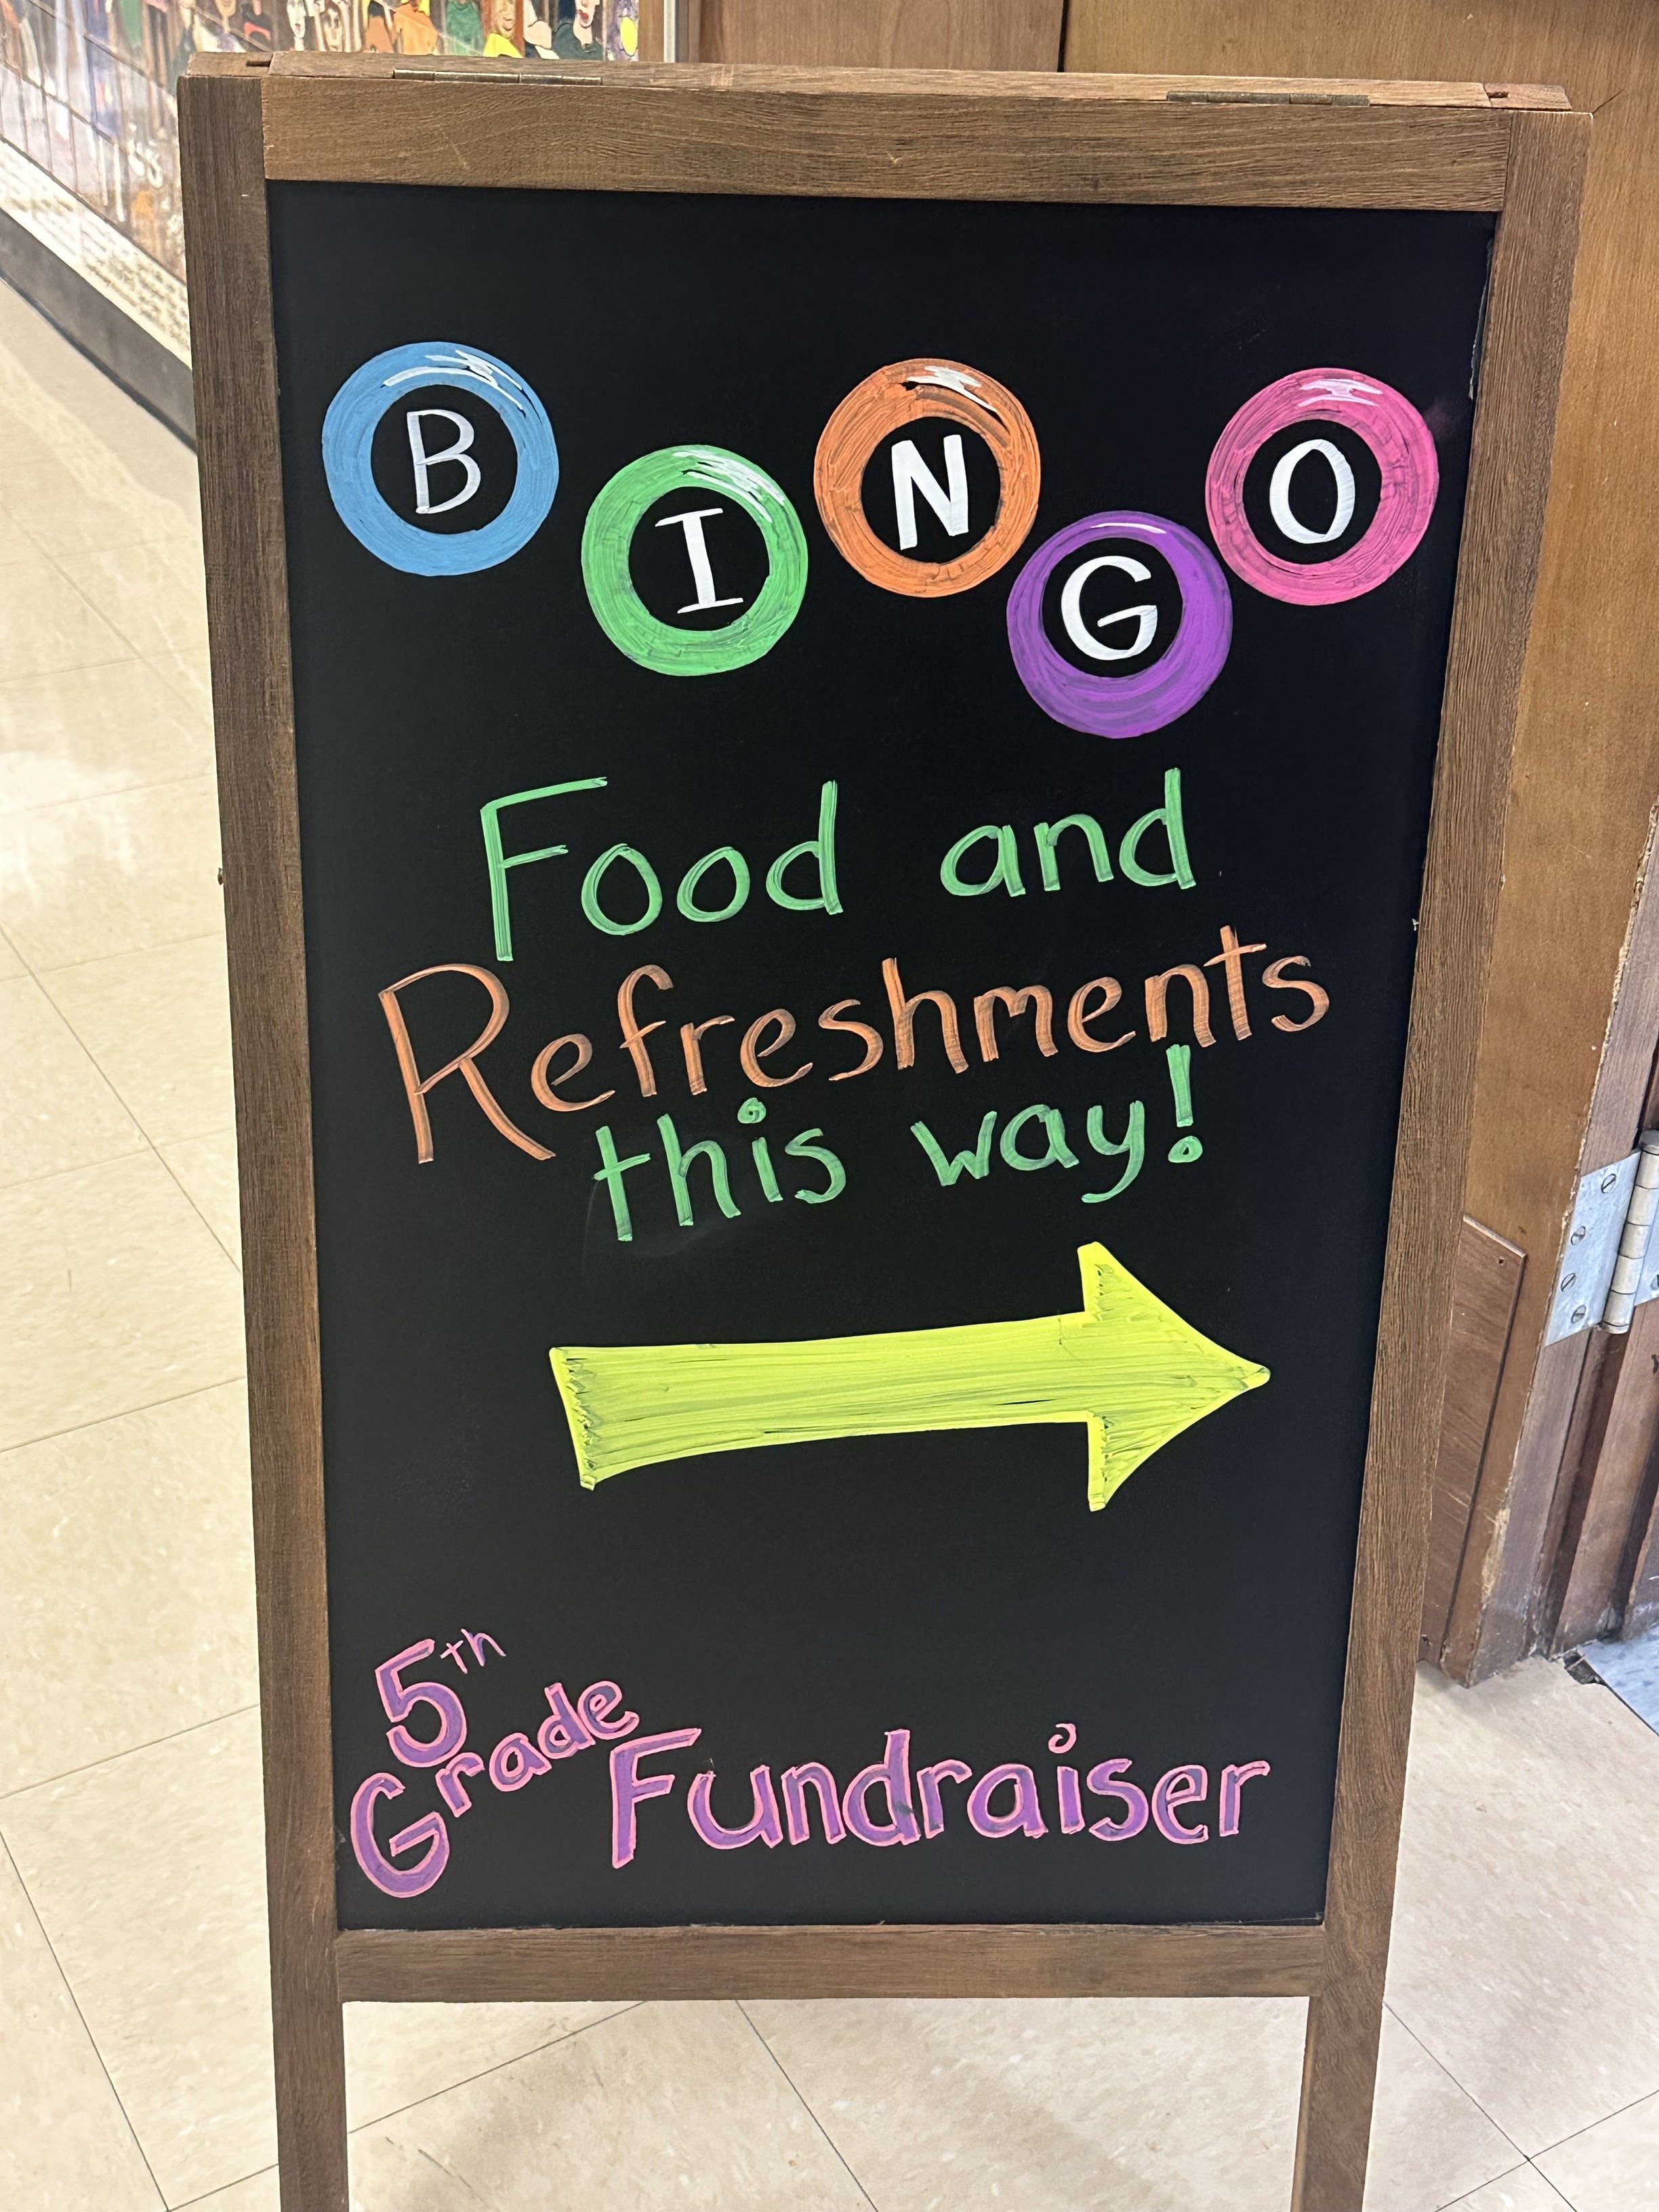 BINGO
Food and
Refreshments
this way!
5th
Grade
Fundraiser